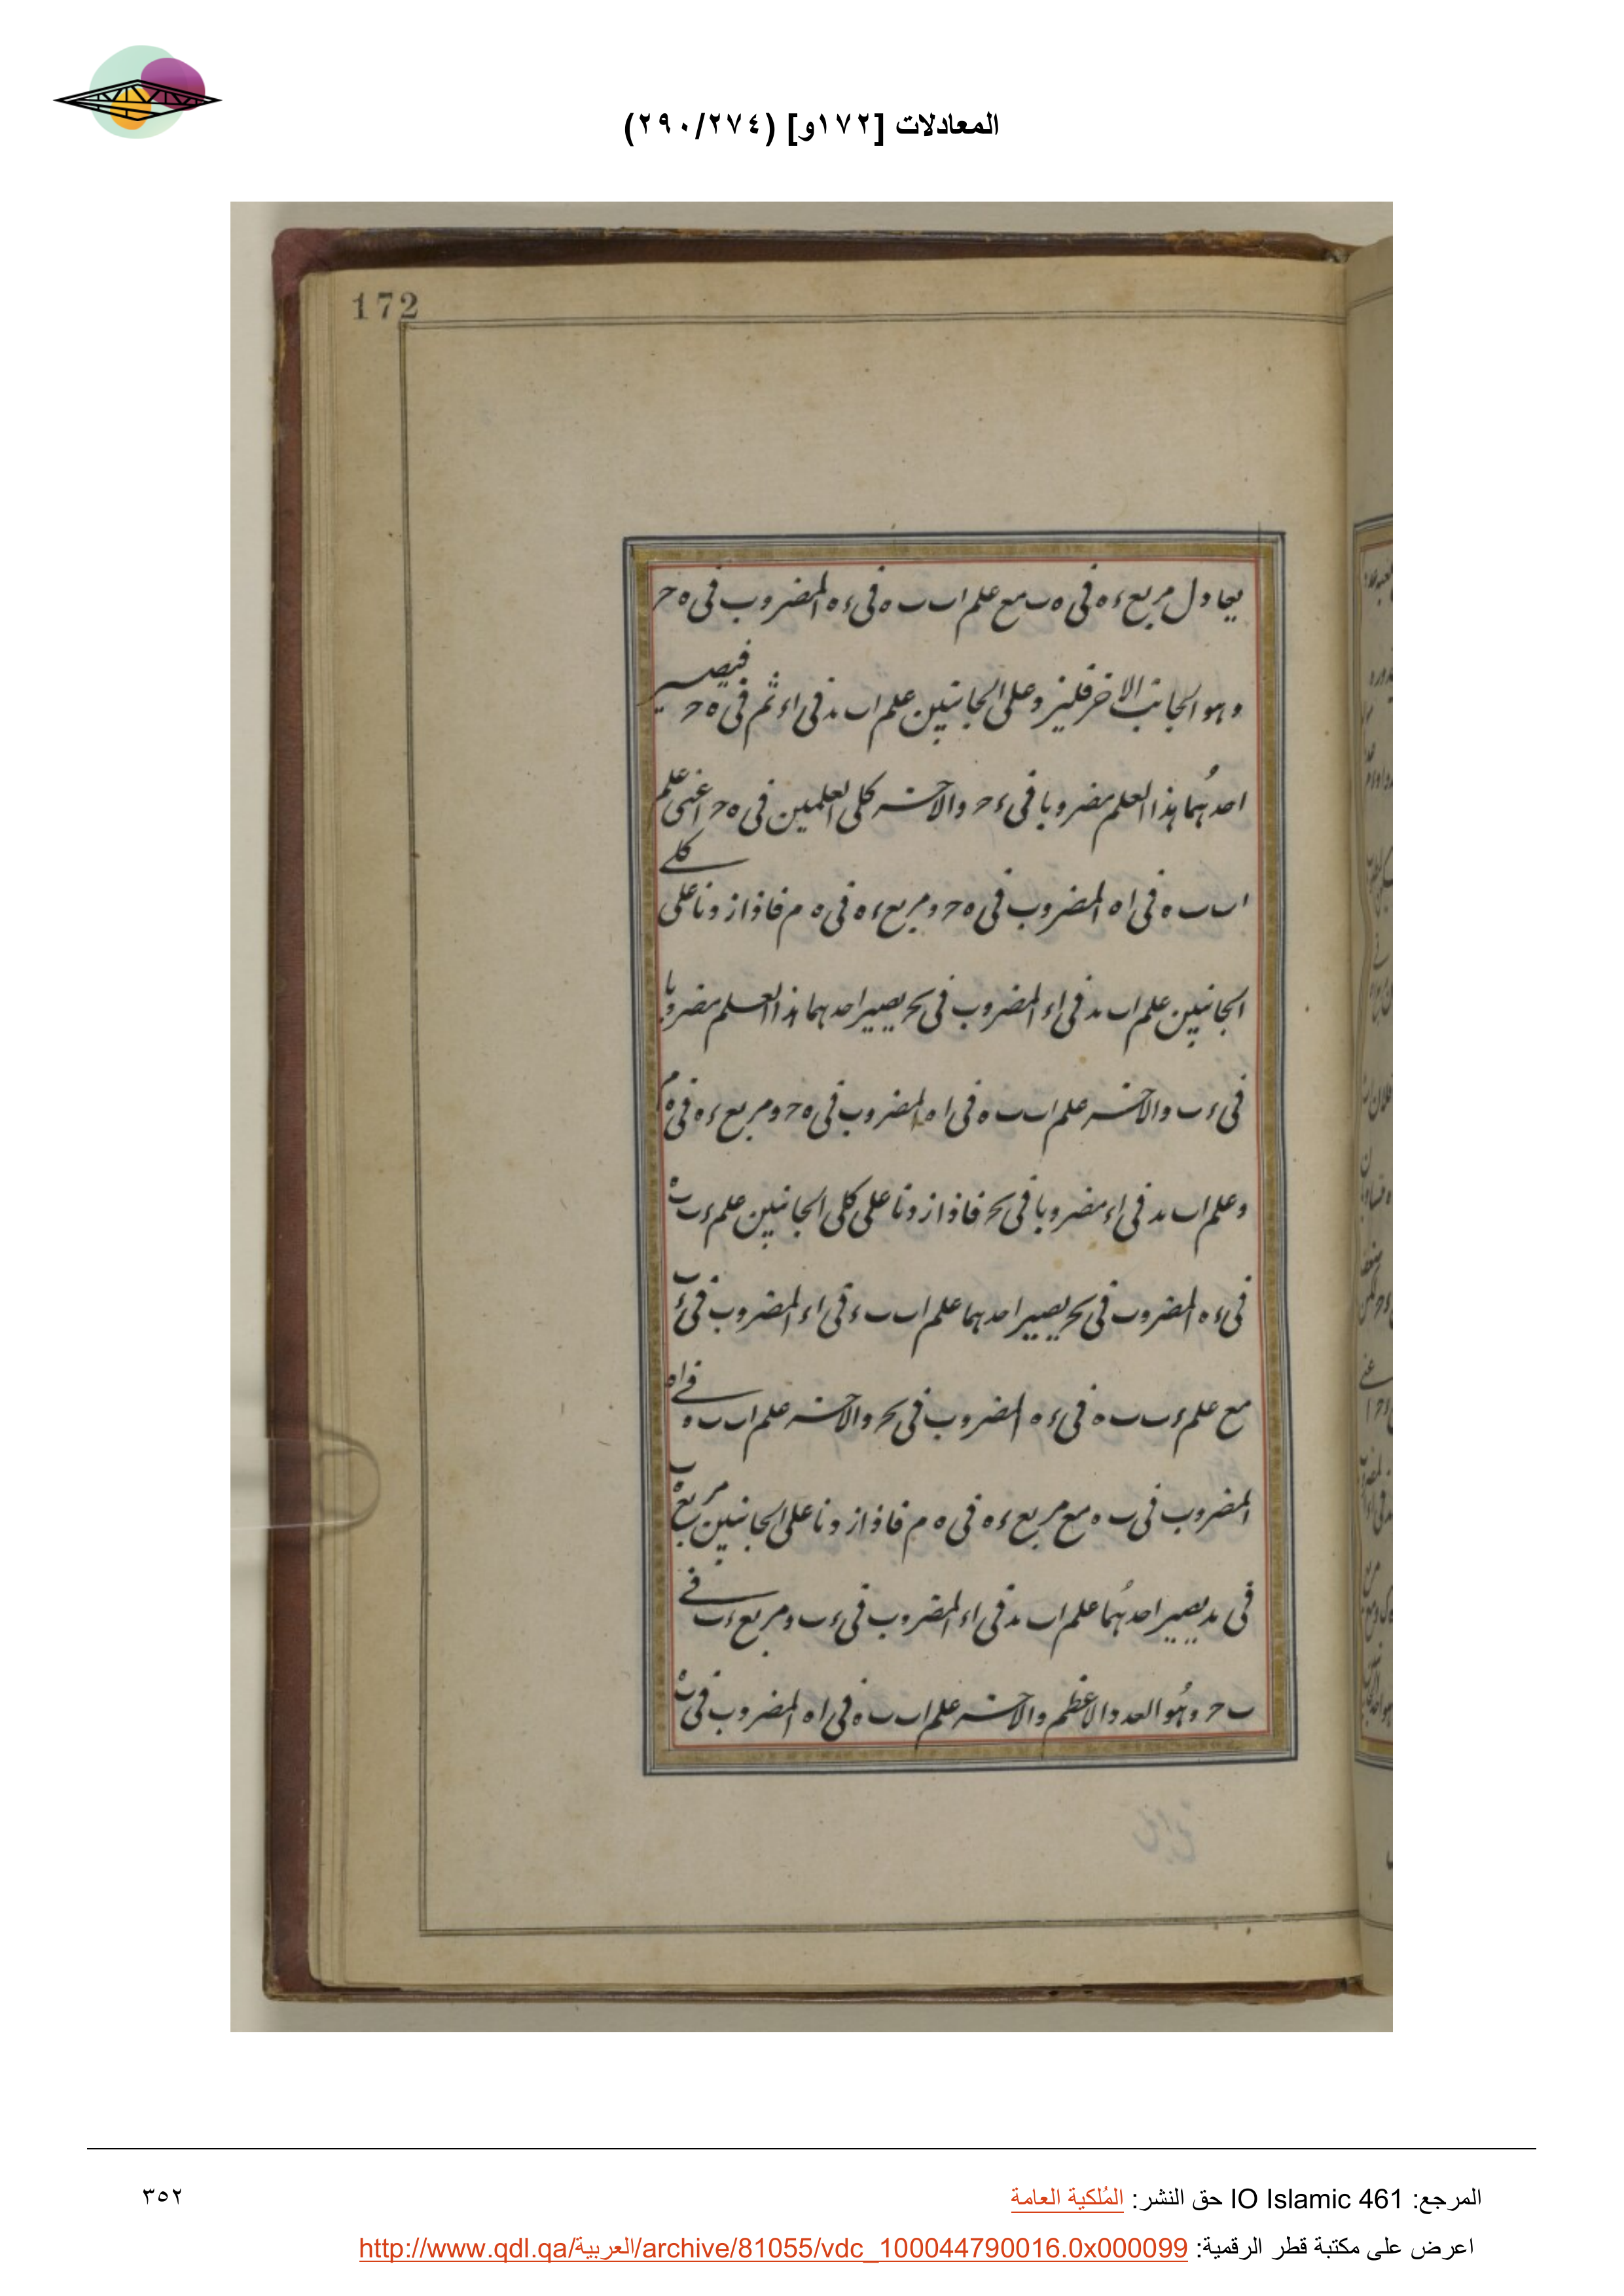 المعادلات [١٧٢و] (٢٩٠/٢٧٤)
172
يعادل مربع ءه في ه ب مع علم ا ب ب ه في ءه المضروب في ه ح
وهو الجانب الاخر فليزد على الجانبين علم ا ب ب د في ا ء ثم في ه ح فيصير
احدهما هذا العلم مضروبا في ء ح والاخر كلي العلمين في ه ح اعني علم
ا ب ب ه في ا ه المضروب في ه ح ومربع ءه في ه م فاذا زدنا على كلي
الجانبين علم ا ب ب د في ا ء المضروب في ب ح يصير احدهما هذا العلم مضروبا
في ء ب والاخر علم ا ب ب ه في ا ه المضروب في ه ح ومربع ءه في ه م
وعلم ا ب ب د في ا ء مضروبا في ب ح فاذا زدنا على كلي الجانبين علم ء ب ب ه
في ء ه المضروب في ب ح يصير احدهما علم ا ب ب ء في ا ء المضروب في ء ب
مع علم ء ب ب ه في ء ه المضروب في ب ح والاخر علم ا ب ب ه في ا ه
المضروب في ب ه مع مربع ءه في ه م فاذا زدنا على الجانبين مربع
في ب د يصير احدهما علم ا ب ب د في ا ء المضروب في ء ب ومربع ء ب في
ب ح وهو العدد الاعظم والاخر علم ا ب ب ه في ا ه المضروب في ب ه
المرجع: IO Islamic 461 حق النشر: المُلكية العامة
٣٥٢
اعرض على مكتبة قطر الرقمية: http://www.qdl.qa/العربية/archive/81055/vdc_100044790016.0x000099